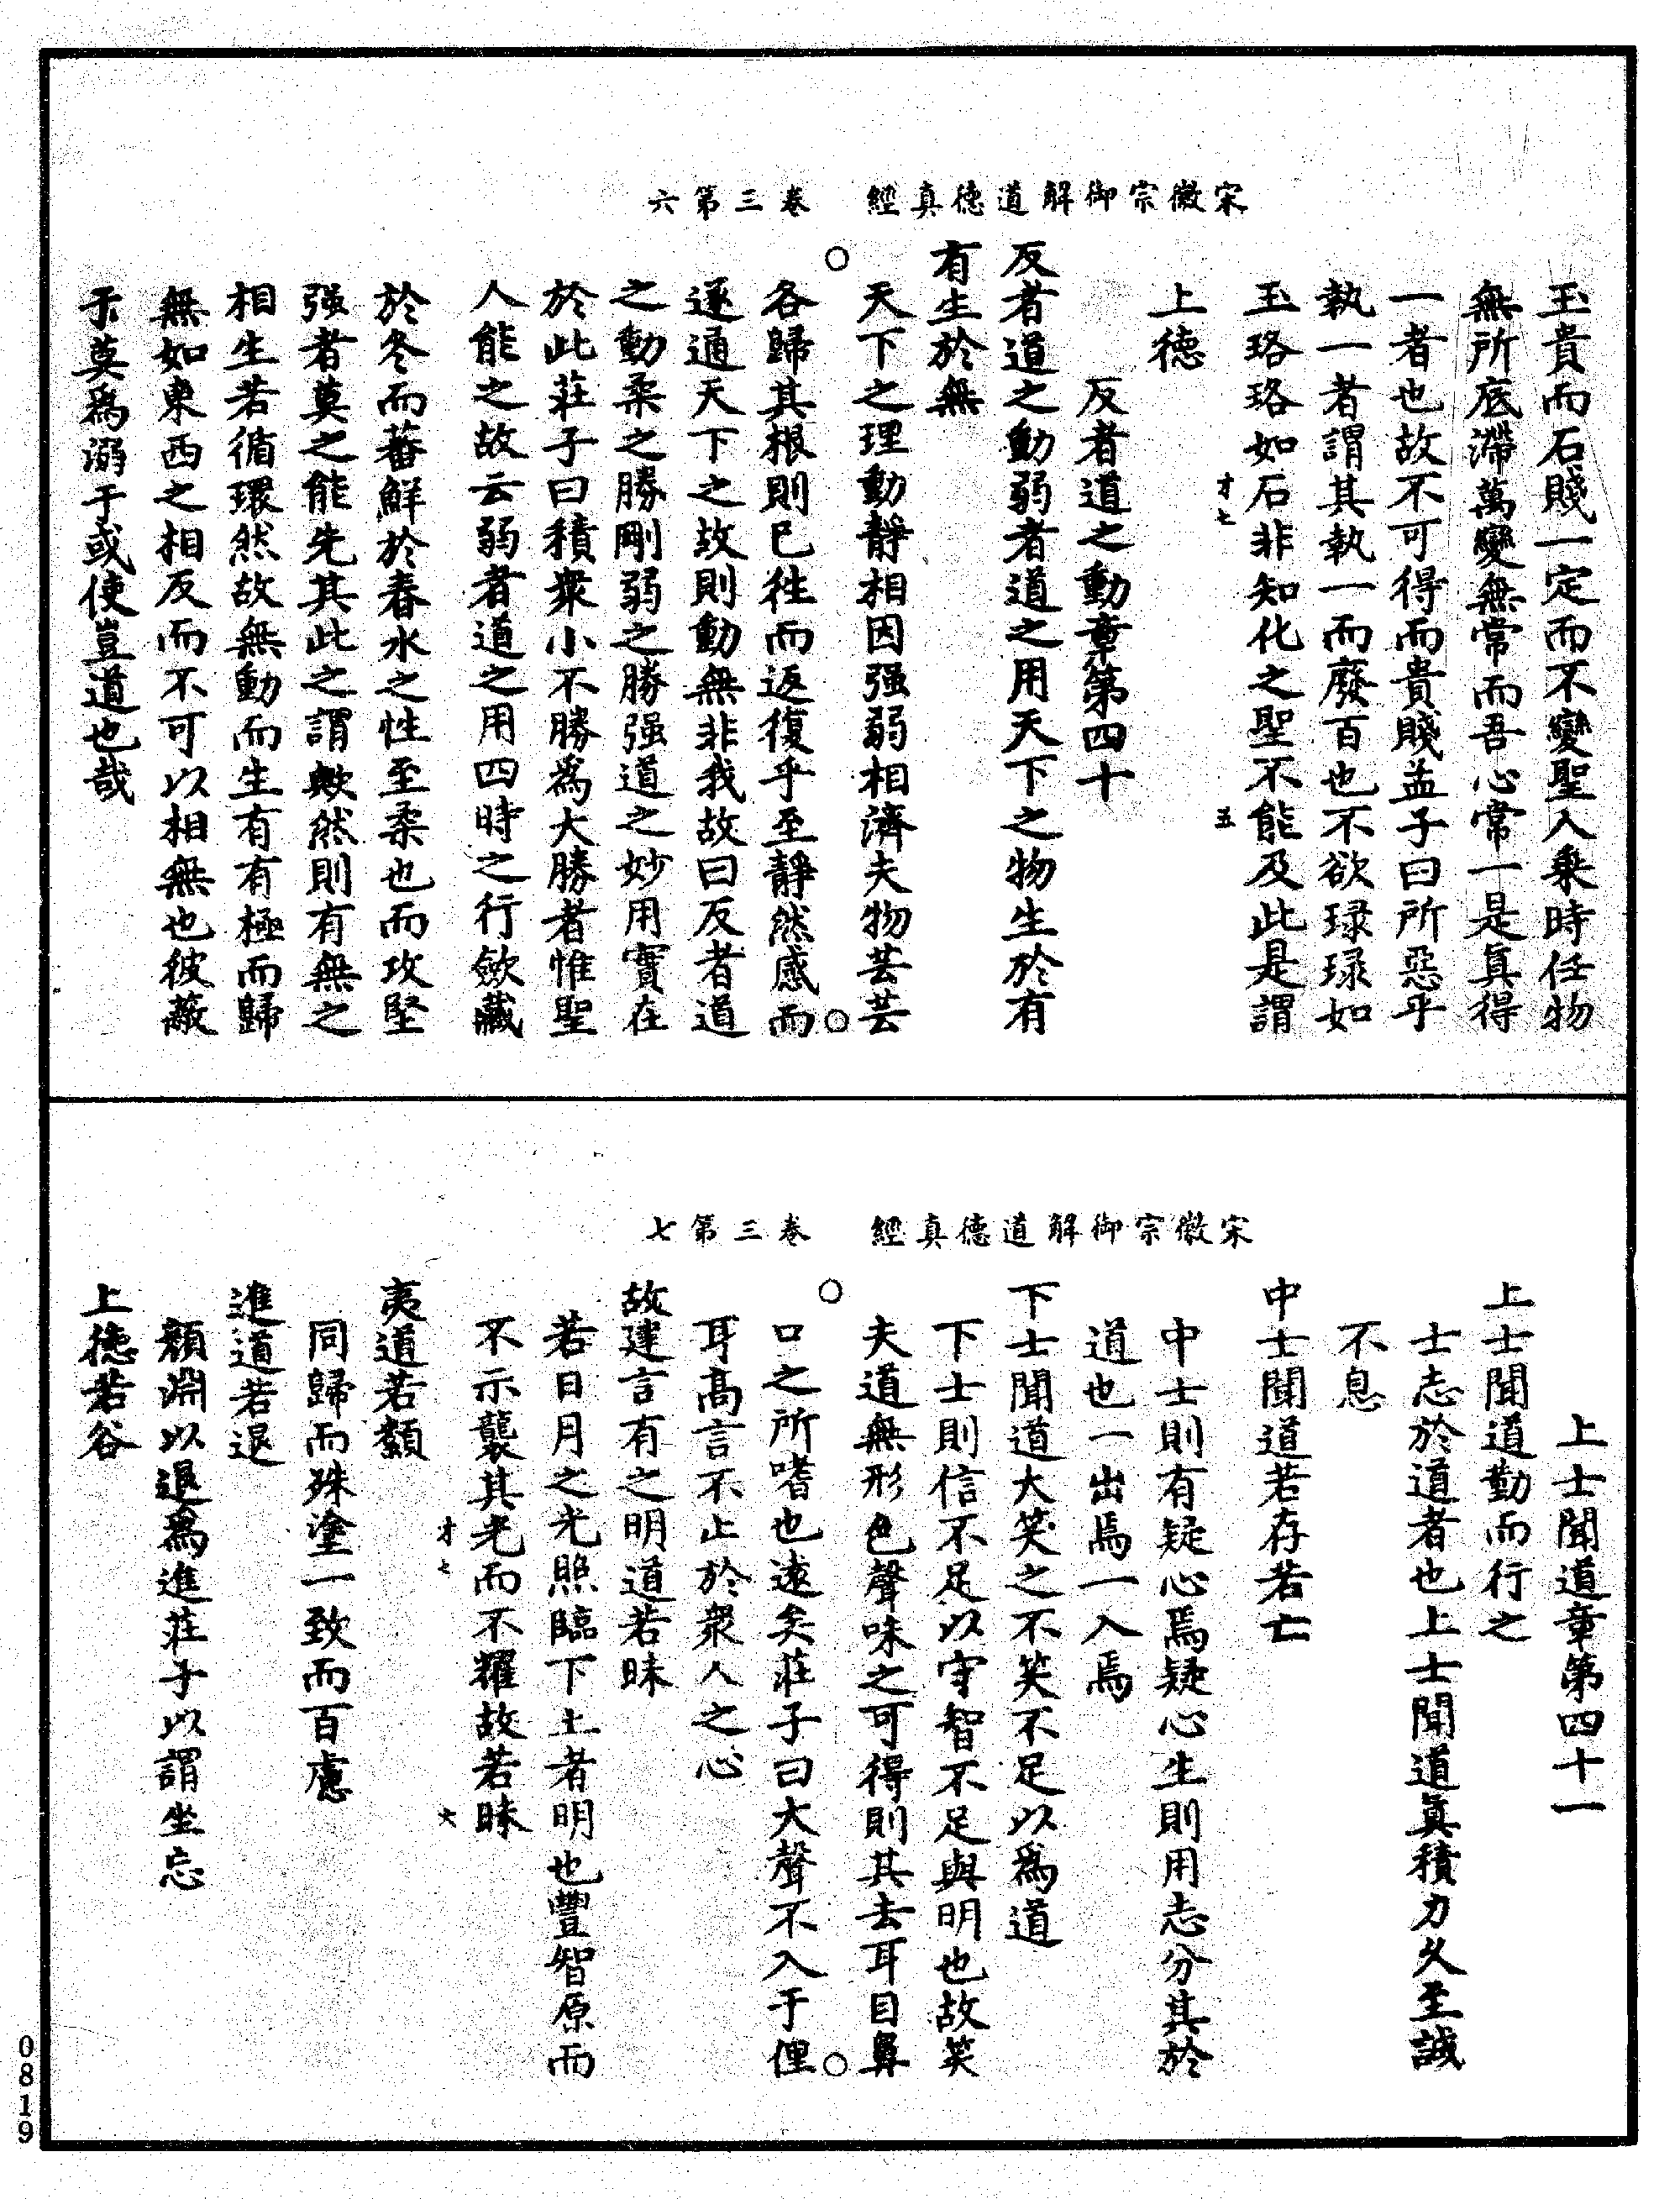 宋徽宗御解道德真經　卷三第六
玉貴而石賤一定而不變聖人乘時任物
無所底滯萬變無常而吾心常一是真得
一者也故不可得而貴賤孟子曰所惡乎
執一者謂其執一而廢百也不欲琭琭如
玉珞珞如石非知化之聖不能及此是謂
才七　五
上德
反者道之動章第四十
反者道之動弱者道之用天下之物生於有
有生於無
天下之理動靜相因强弱相濟夫物芸芸
各歸其根則已徃而返復乎至靜然感而
遂通天下之故則動無非我故曰反者道
之動柔之勝剛弱之勝强道之妙用實在
於此莊子曰積衆小不勝爲大勝者惟聖
人能之故云弱者道之用四時之行斂藏
於冬而蕃鮮於春水之性至柔也而攻堅
强者莫之能先其此之謂歟然則有無之
相生若循環然故無動而生有有極而歸
無如東西之相反而不可以相無也彼蔽
于莫爲溺于或使豈道也哉
宋徽宗御解道德真經　卷三第七
上士聞道章第四十一
上士聞道勤而行之
士志於道者也上士聞道真積力久至誠
不息
中士聞道若存若亡
中士則有疑心焉疑心生則用志分其於
道也一出焉一入焉
下士聞道大笑之不笑不足以爲道
下士則信不足以守智不足與明也故笑
夫道無形色聲味之可得則其去耳目鼻
口之所嗜也遠矣莊子曰大聲不入于俚
耳高言不止於衆人之心
故建言有之明道若昧
若日月之光照臨下土者明也豐智原而
不示襲其光而不耀故若昧
才七　六
夷道若纇
同歸而殊塗一致而百慮
進道若退
顏淵以退爲進莊子以謂坐忘
上德若谷
0819